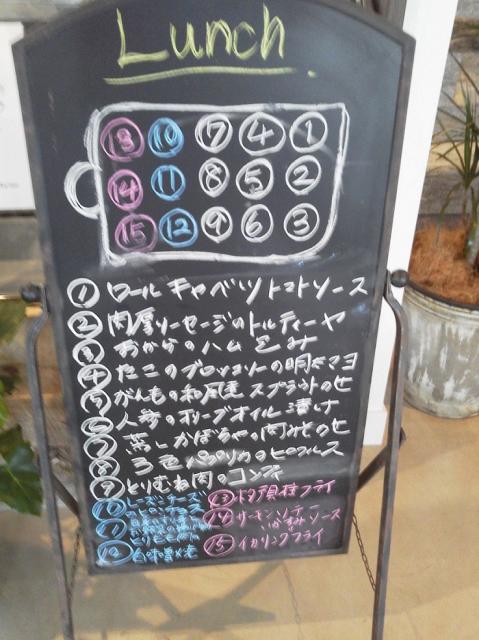 Lunch
⑬ ⑩ ⑦ ④ ①
⑭ ⑪ ⑧ ⑤ ②
⑮ ⑫ ⑨ ⑥ ③
① ロールキャベツトマトソース
② 肉厚ソーセージのトルティーヤ
③ おからのハム包み
④ たことブロッコリーの明太マヨ
⑤ がんもの和風煮 スプラウトのせ
⑥ 人参のオリーブオイル漬け
⑦ 蒸しかぼちゃの肉みそのせ
⑧ 3色パプリカのピクルス
⑨ とりむね肉のコンフィ
⑩ レーズンチーズ
⑪
⑫ 白味噌
⑬ ホタテ貝柱フライ
⑭ サーモンソテー
いかすみソース
⑮ イカリングフライ